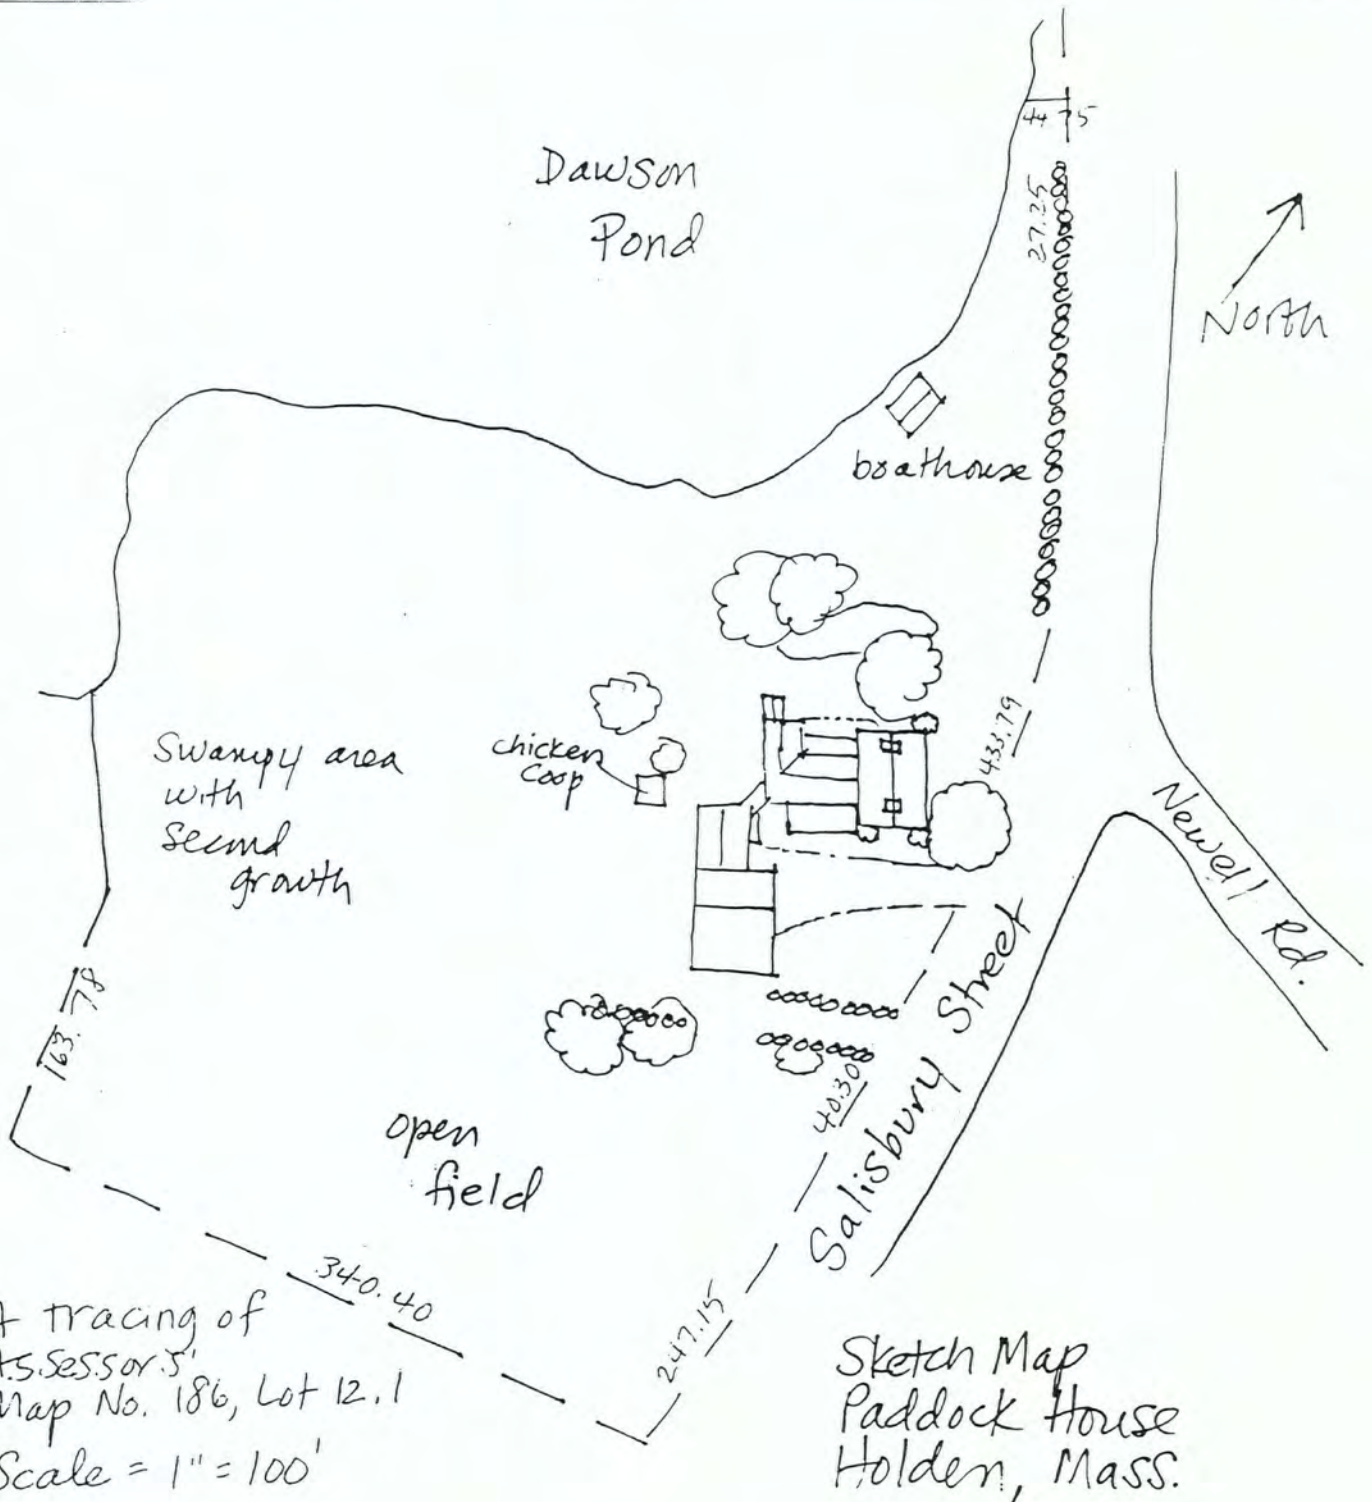 44.75
Dawson
Pond
27.25
North
boathouse
433.79
Swampy area
with
second
growth
chicken
coop
Newell Rd.
163.78
Salisbury Street
40.30
open
field
340.40
247.15
A tracing of
Assessor's
Map No. 186, Lot 12.1
Scale = 1" = 100'
Sketch Map
Paddock House
Holden, Mass.